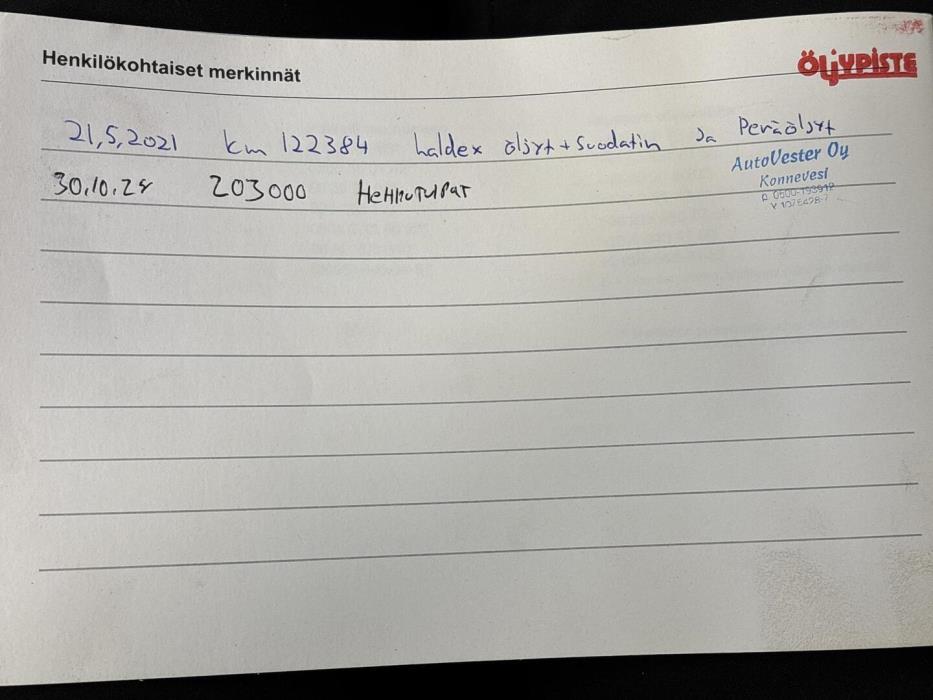 Henkilökohtaiset merkinnät
ÖLJYPISTE
21,5,2021 km 122384 haldex öljyt + Suodatin Ja Peräöljyt
AutoVester Oy
Konnevesi
30.10.24 203000 Hehkutulpat